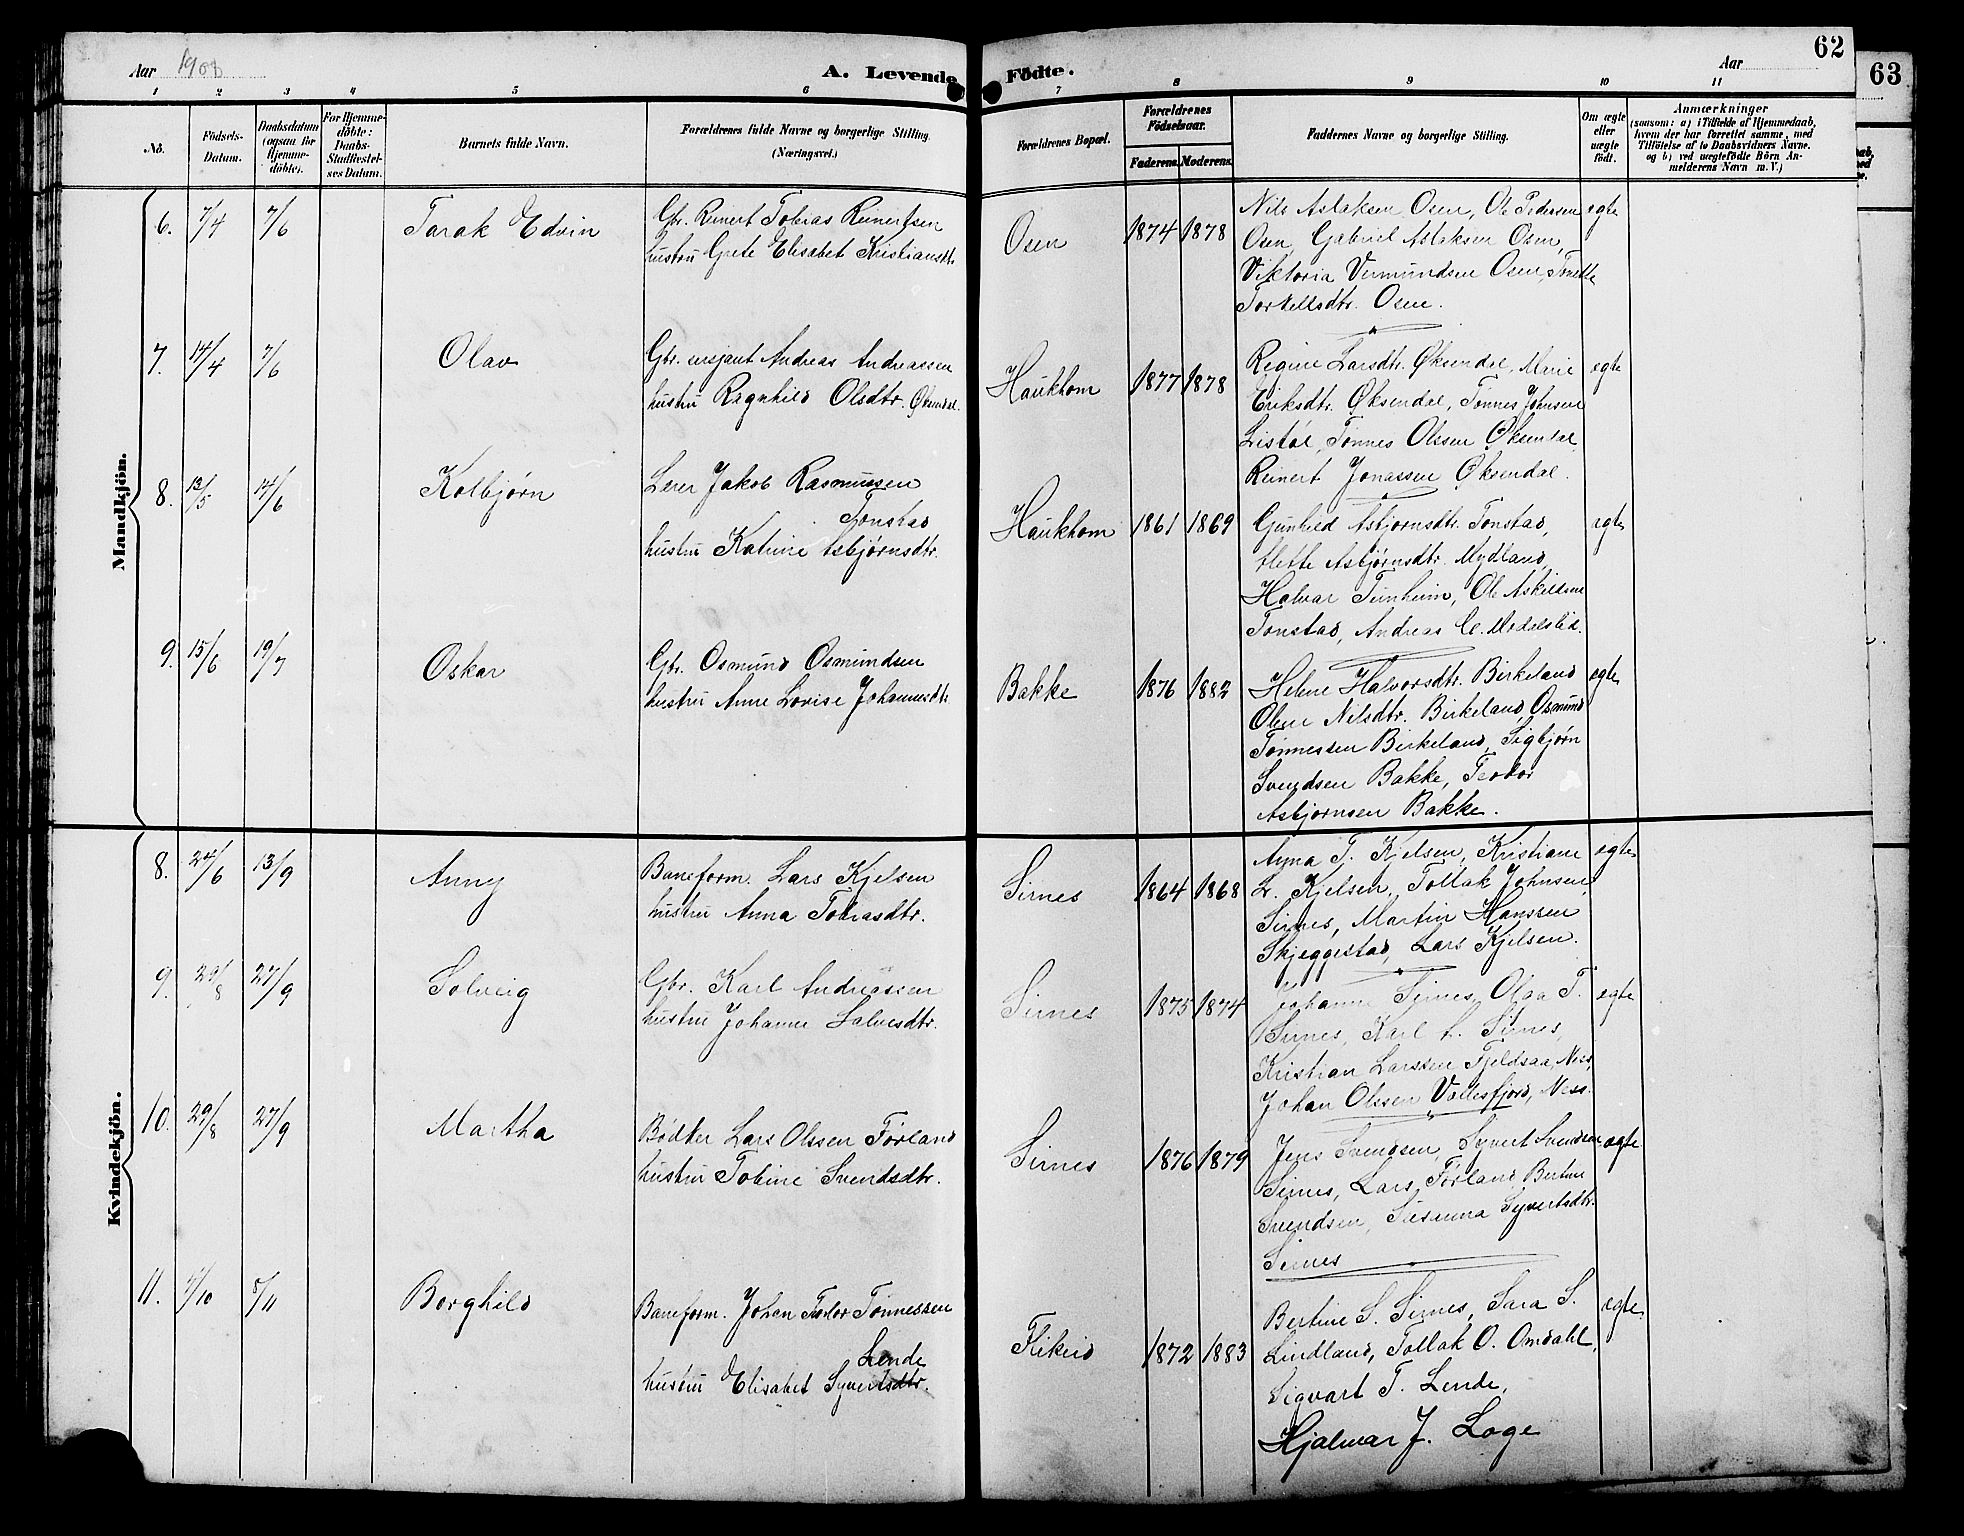 62
63
Aar 1908
A. Levende Födte.
Aar
1 2 3 4 5 6 7 8 9 10 11
No.
Födsels-Datum.
Daabsdatum (ogsaa for Hjemme-döbte).
For Hjemme-döbte: Daabs-Stadfæstel-ses Datum.
Barnets fulde Navn.
Forældrenes fulde Navne og borgerlige Stilling.
(Næringsvei.)
Forældrenes Bopæl.
Forældrenes Födselsaar.
Faderens. Moderens.
Faddernes Navne og borgerlige Stilling.
Om ægte eller uægte födt.
Anmærkninger
(saasom: a) i Tilfælde af Hjemmedaab,
hvem der har forrettet samme, med
Tilföielse af to Daabsvidners Navne.
og b) ved uægtefödte Börn An-
melderens Navn m. V.)
Mandkjön.
6. 7/4 7/6 Tarak Edvin
Gbr. Reinert Tobias Reinertsen
hustru Grete Elisabet Kristiansdtr.
Osen 1874 1878
Nils Aslaksen Osen, Ole Pedersen
Osen, Gabriel Aslaksen Osen,
Viktoria Vermundsen Osen, Tonette
Torkellsdtr. Osen.
egte
7. 14/4 7/6 Olav
Gbr. sersjant Andreas Andreassen
hustru Ragnhild Olsdtr. Øksendal.
Haukhom 1877 1878
Regine Larsdtr. Øksendal, Marie
Eriksdtr. Øksendal, Tønnes Johnsen
Listøl, Tønnes Olssen Øksendal,
Reinert Jonassen Øksendal.
egte
8. 13/5 14/6 Kolbjørn
Lærer Jakob Rasmussen
Tonstad
hustru Katrine Asbjørnsdtr.
Haukhom 1861 1869
Gunhild Asbjørnsdtr. Tonstad,
Mette Asbjørnsdtr. Mydland,
Halvar Tunheim, Ole Askildsen
Tonstad, Andreas C. Modalsli.
egte
9. 15/6 19/7 Oskar
Gbr. Osmund Osmundsen
hustru Anne Lovise Johannesdtr.
Bakke 1876 1882
Helene Halvorsdtr. Birkeland
Olene Nilsdtr. Birkeland, Osmund
Tønnessen Birkeland, Sigbjørn
Svendsen Bakke, Teodor
Asbjørnsen Bakke.
egte
Kvindekjön.
8. 24/6 13/9 Anny
Baneform. Lars Kjelsen
hustru Anna Tobiasdtr.
Sirnes 1864 1868
Anna T. Kjelsen, Kristiane
L. Kjelsen, Tollak Johnsen
Sirnes, Martin Hanssen
Skjeggestad, Lars Kjelsen.
egte
9. 29/8 27/9 Solveig
Gbr. Karl Andreassen
hustru Johanne Salvesdtr.
Sirnes 1875 1874
Johanne Sirnes, Olga T.
Sirnes, Karl L. Sirnes,
Kristian Larssen Fjeldsaa, Ness,
Johan Olssen Vollesfjord, Ness.
egte
10. 29/8 27/9 Martha
Bødker Lars Olssen Førland
hustru Tobine Svendsdtr.
Sirnes 1876 1879
Jens Svendsen, Syvert Svendsen
Sirnes, Lars Førland, Bertine
Svendsen, Susanna Syvertsdtr.
Sirnes
egte
11. 4/10 8/11 Borghild
Baneform. Johan Teodor Tønnessen
Lende
hustru Elisabet Syvertsdtr.
Flikeid 1872 1883
Bertine S. Sirnes, Sara S.
Lindland, Tollak O. Omdahl,
Sigvart T. Lende,
Hjalmar J. Loge
egte